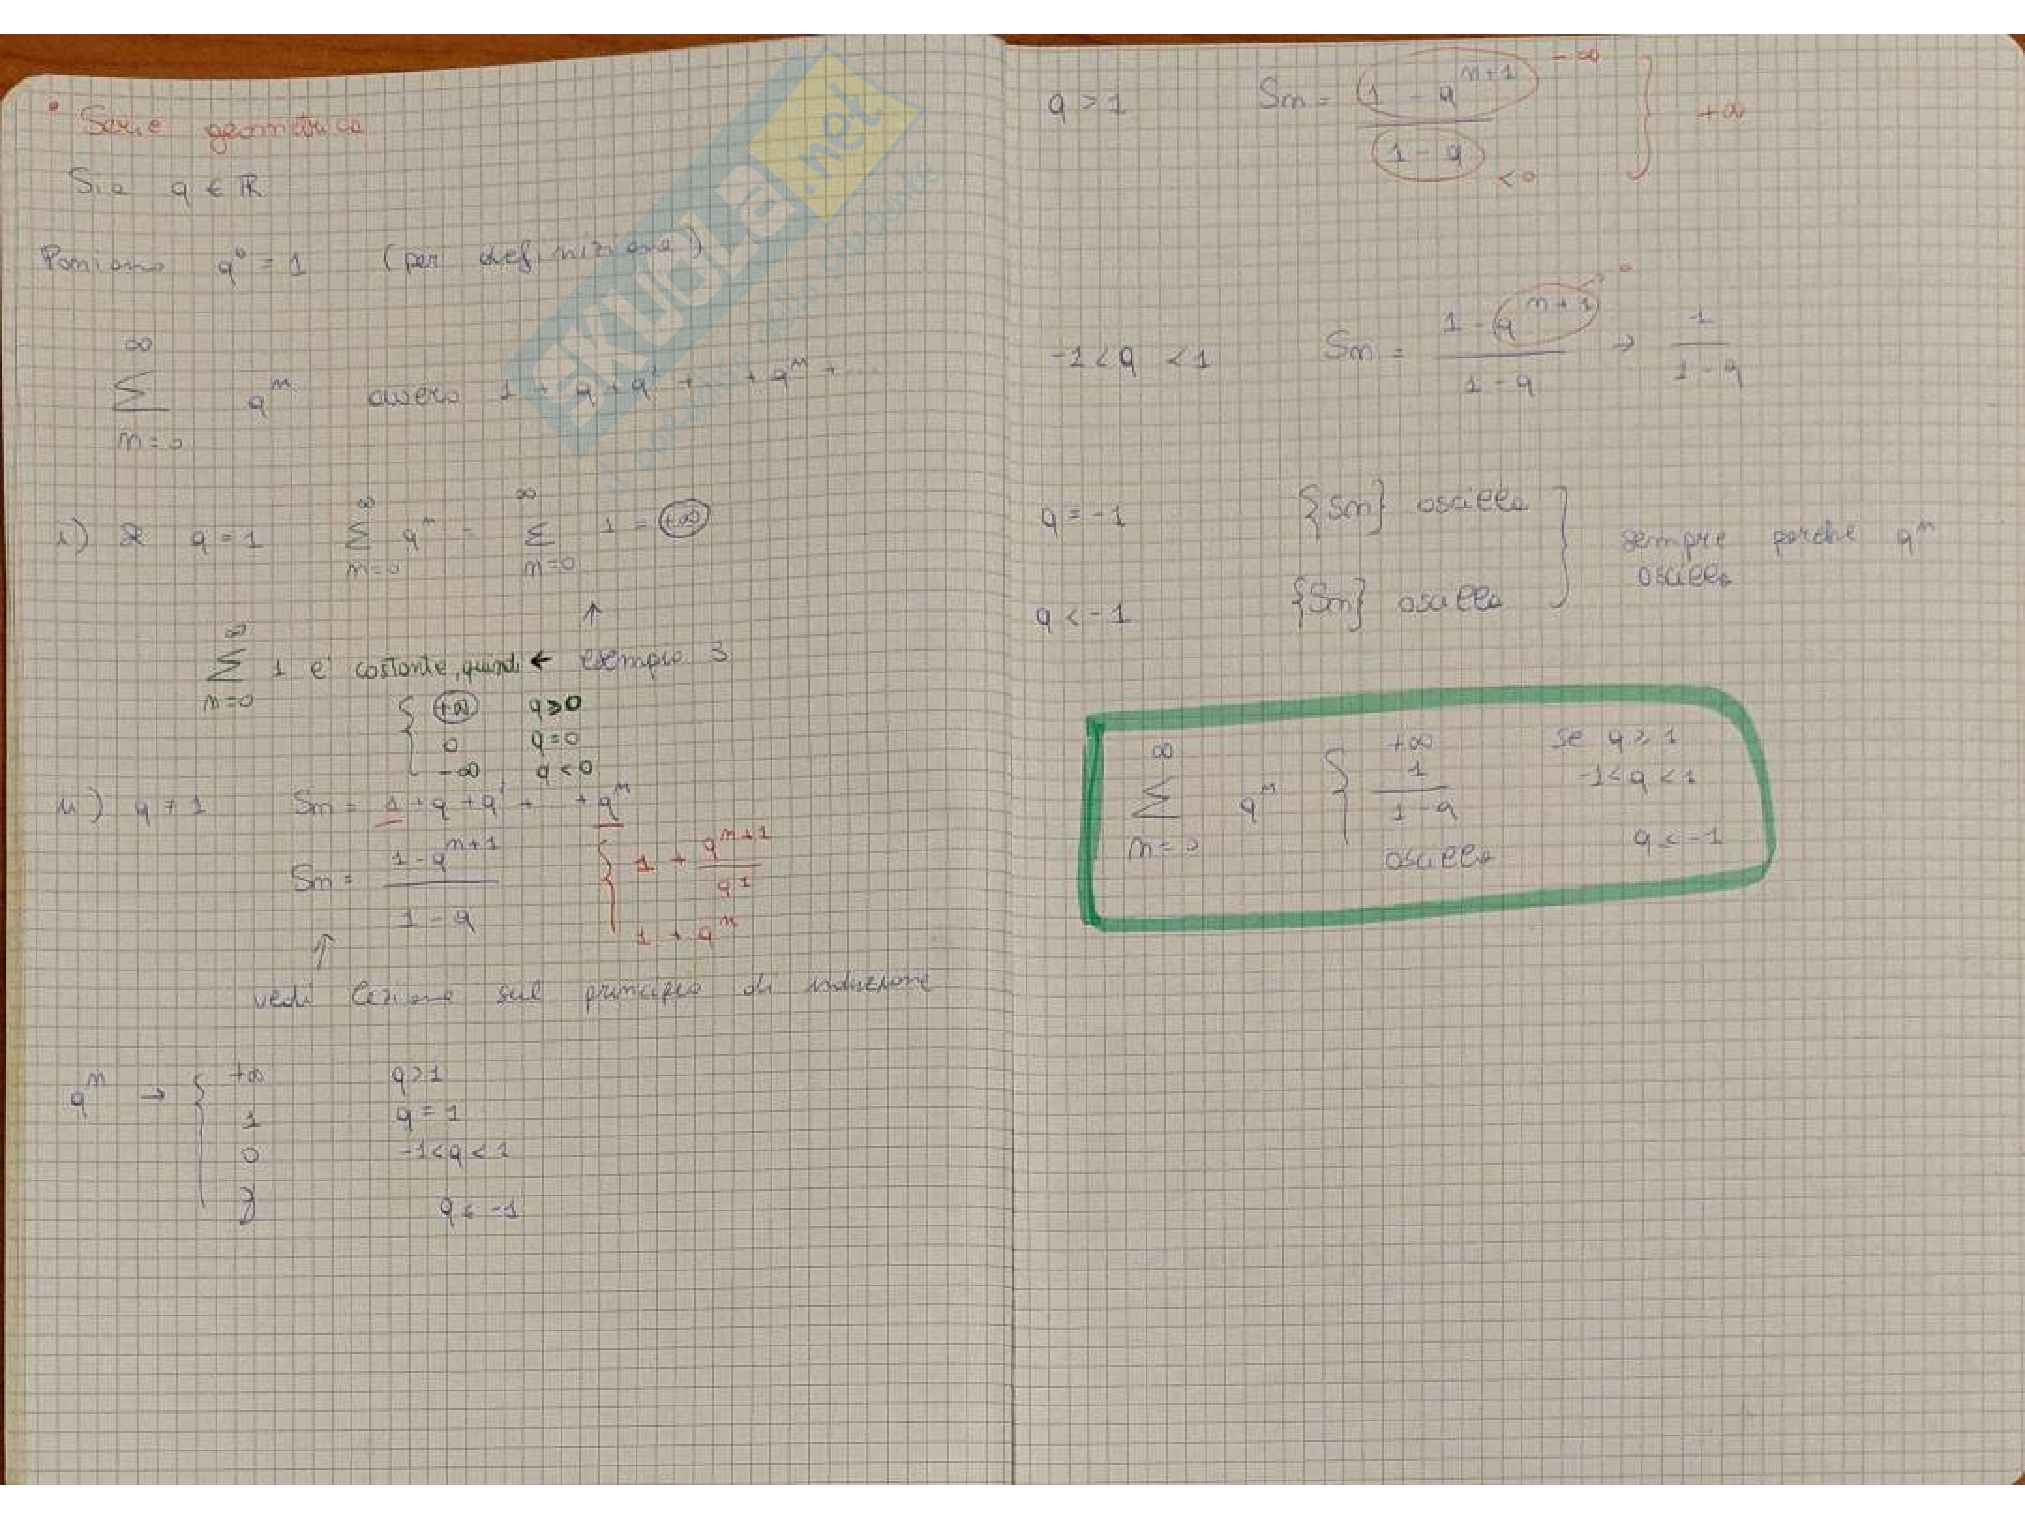 • Serie geometrica
Sia q ∈ ℝ
Poniamo q⁰ = 1 (per definizione)
∞
∑ qⁿ ovvero 1 + q + q² + ... + qⁿ + ...
n=0
i) se q = 1 ∑ⁿ⁼⁰^∞ qⁿ = ∑ⁿ⁼⁰^∞ 1 = +∞
↑
∞
∑ 1 e' costante, quindi ← esempio 3
n=0
{ +∞ q>0
0 q=0
-∞ q<0
ii) q ≠ 1 Sn = 1 + q + q² + + qⁿ
Sn = (1 - q^(n+1)) / (1 - q) { 1 + q^(n+1) / q^1
1 + qⁿ
↑
vedi lezione sul principio di induzione
qⁿ → { +∞ q>1
1 q = 1
0 -1<q<1
∄ q ≤ -1
q > 1 Sn = (1 - q^(n+1)) / (1 - q) -∞ <0 } +∞
-1 < q < 1 Sn = (1 - q^(n+1)) / (1 - q) → 1 / (1 - q)
→ 0
q = -1 {Sn} oscilla
} sempre perché qⁿ
oscilla
q < -1 {Sn} oscilla
∞
∑ qⁿ { +∞ se q ≥ 1
n=0
1 / (1 - q) -1<q<1
oscilla q ≤ -1
SKUOLA.net